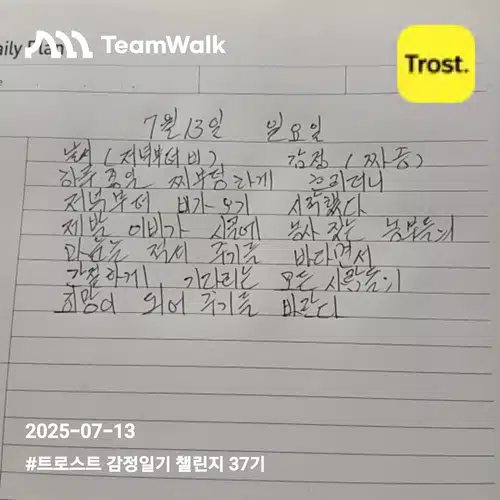 TeamWalk
Trost.
aily Plan
7월 13일 일요일
날씨 (저녁부터 비) 감정 (짜증)
하루종일 찌부덩하게 흐리더니
저녁부터 비가 오기 시작했다
제발 이비가 시골에 농사 짓는 농부들의
마음을 적셔 주기를 바라면서
간절하게 기다리는 모든 사람들의
희망이 되어 주기를 바란다
2025-07-13
#트로스트 감정일기 챌린지 37기